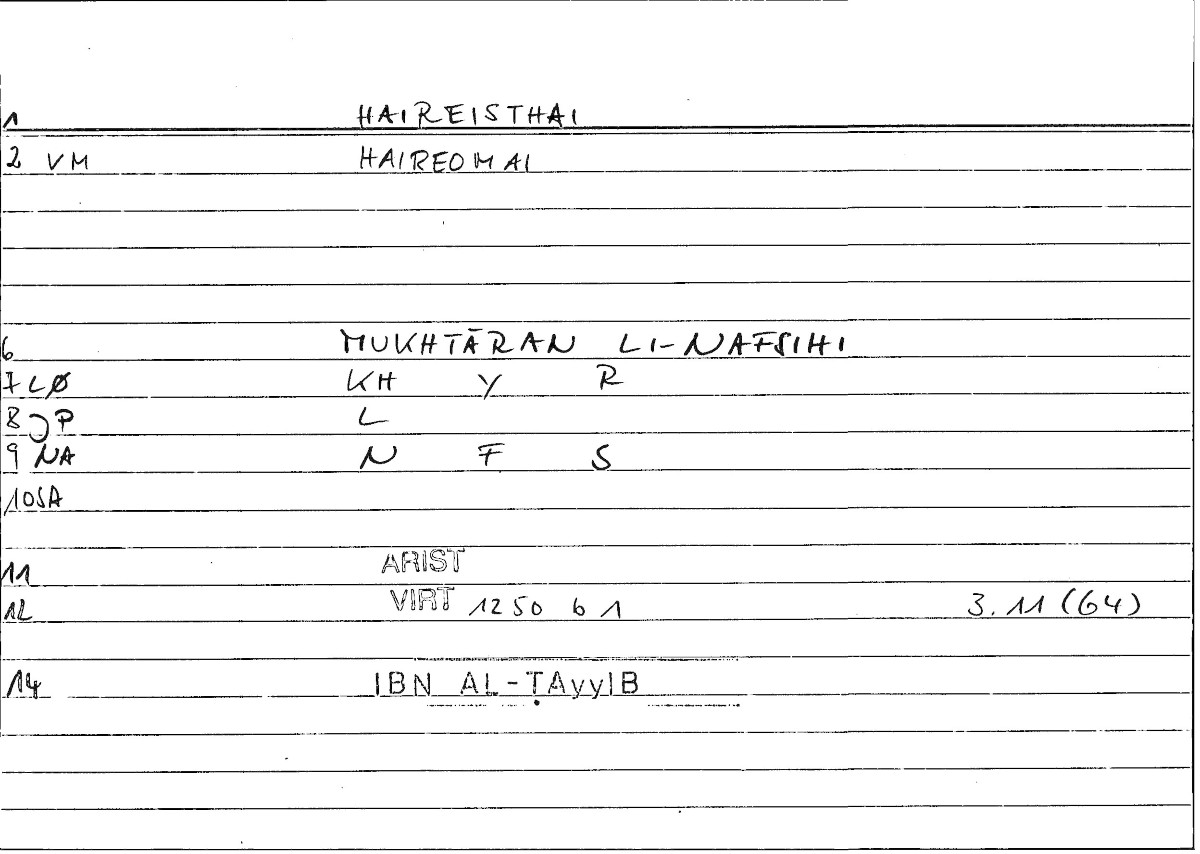 1 HAIREISTHAI
2 VM HAIREOMAI
6 MUKHTĀRAN LI-NAFSIHI
7 LØ KH Y R
8 JP L
9 NA N F S
10SA
11 ARIST
12 VIRT 1250 b 1 3.11 (64)
14 IBN AL-ṬAyyIB